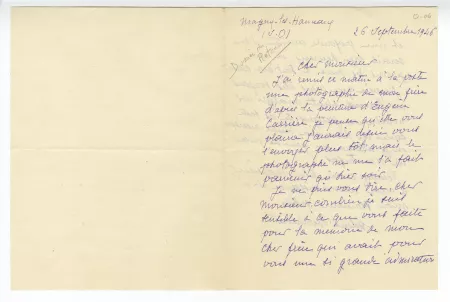 Magny-les-Hameaux
(S. O)
26 Septembre 1926
Cher monsieur
J'ai remis ce matin à la poste
une photographie de mon frère
d'après la peinture d'Eugène
Carrière je pense qu'elle vous
plaira j'aurais désiré vous
l'envoyer plus tôt, mais le
photographe ne me l'a fait
parvenir qu'hier soir.
Je ne puis vous dire, cher
monsieur, combien je suis
sensible à ce que vous faite
pour la mémoire de mon
cher frère qui avait pour
vous une si grande admiration